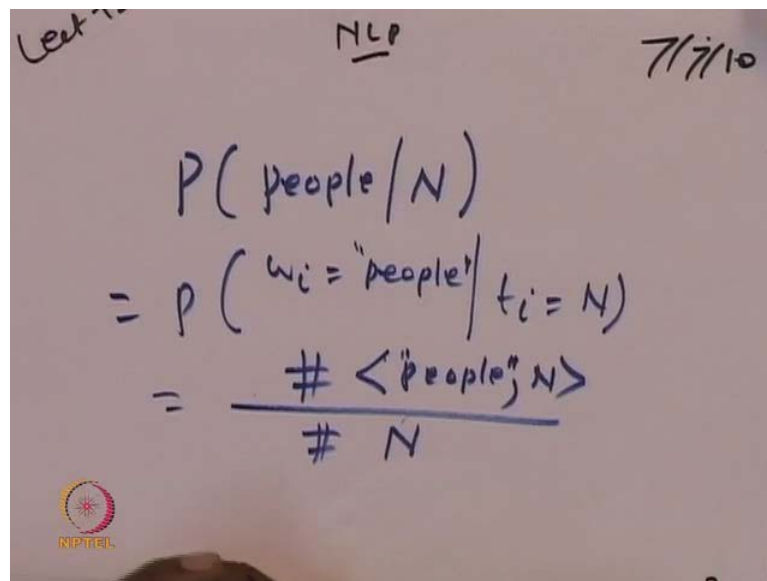 Lect NLP 7/7/10
P( people / N )
= P ( wi = "people" | ti = N)
= # < "people", N >
# N
NPTEL